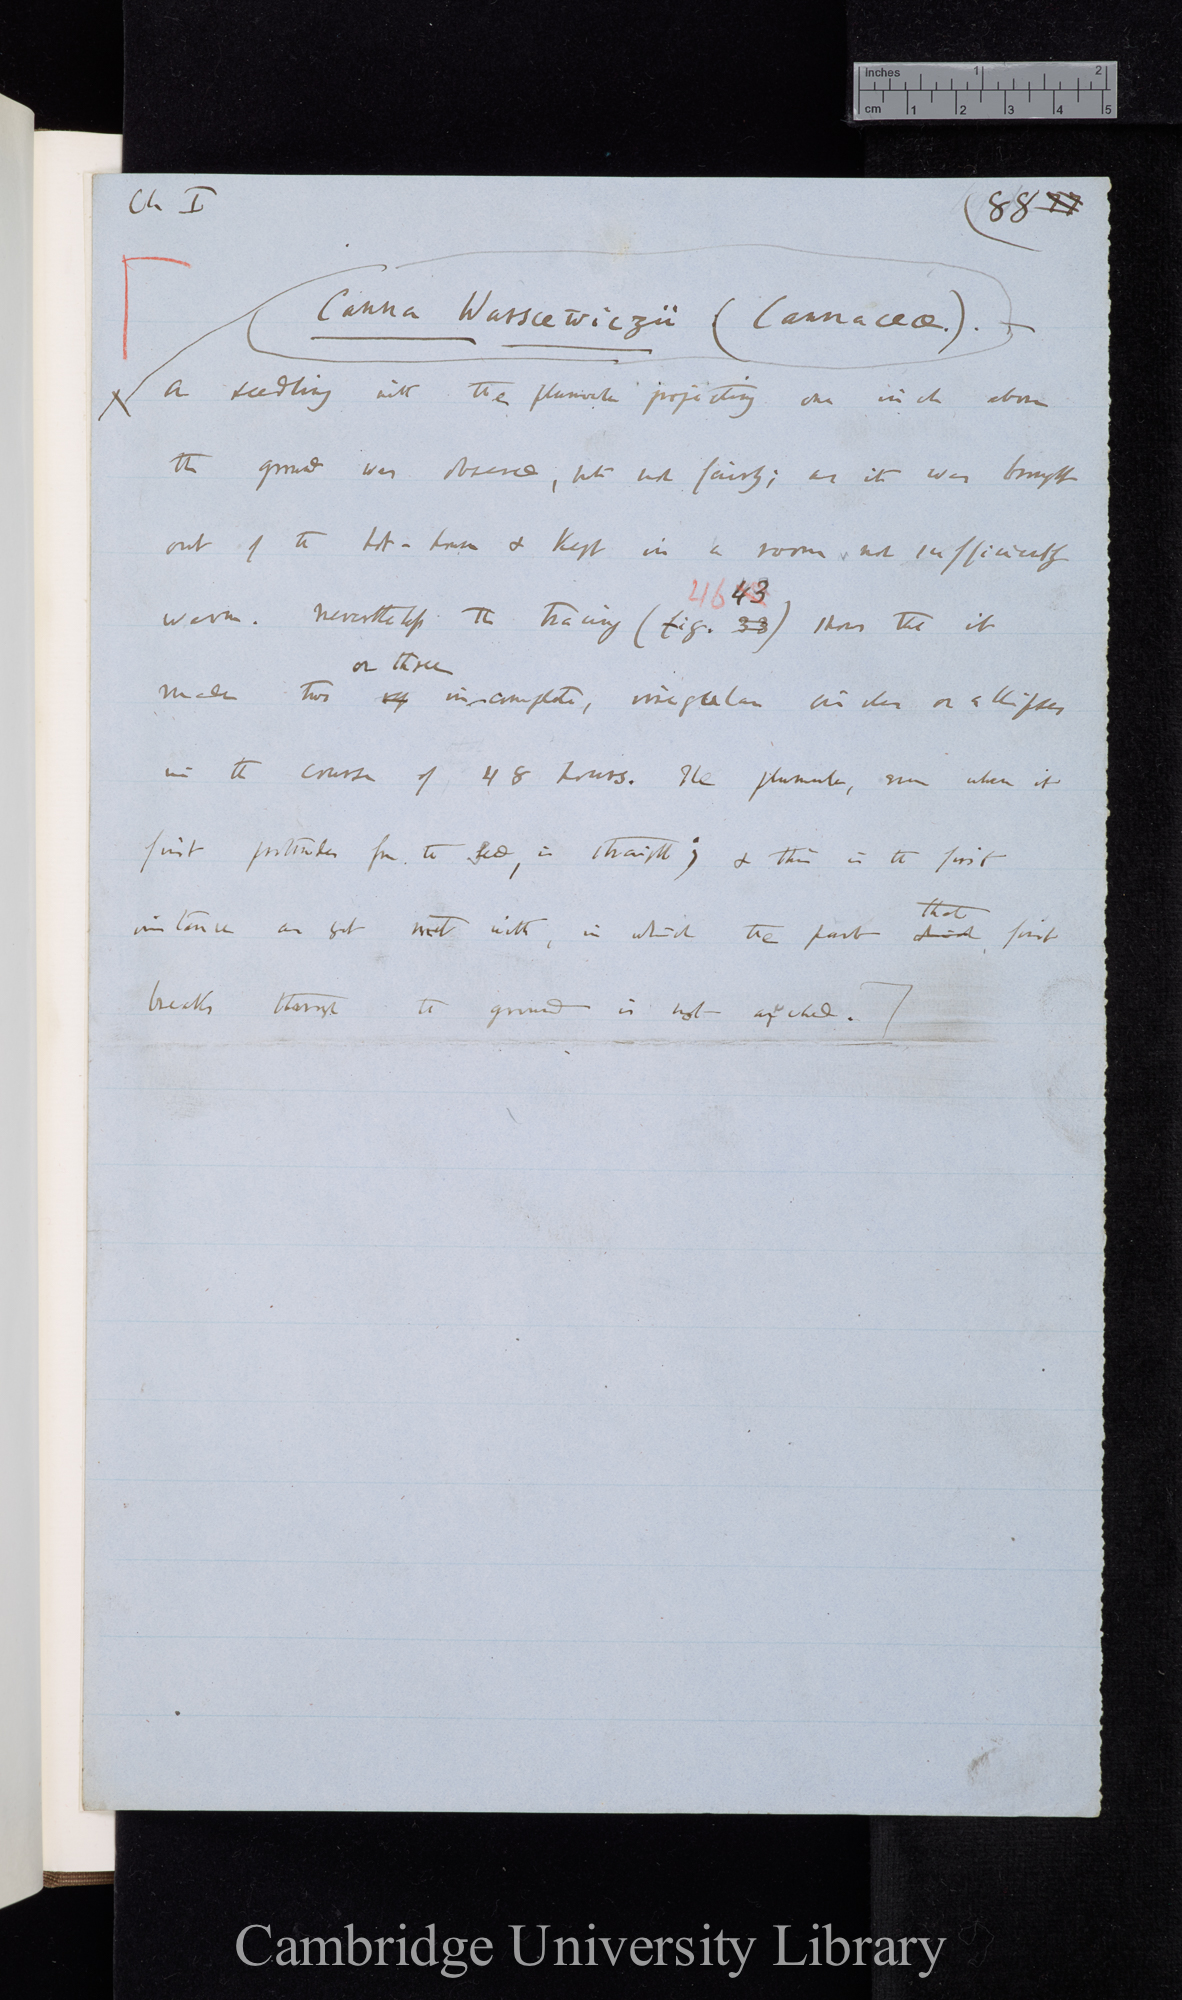 Inches 1 2
cm 1 2 3 4 5
Ch I
(88 77
Canna Warscewiczii (Cannaceæ).—
A seedling with the plumule projecting one inch above
the ground was observed, but not fairly; as it was brought
out of the hot-house & kept in a room not sufficiently
46 43
warm. Nevertheless the tracing (fig. 33) shows that it
or three
made two incomplete, irregular circles or ellipses
in the course of 48 hours. The plumule, even when it
first protrudes from the seed, is straight; & this is the first
that
instance as yet met with, in which the part which first
breaks through the ground is not arched.
Cambridge University Library